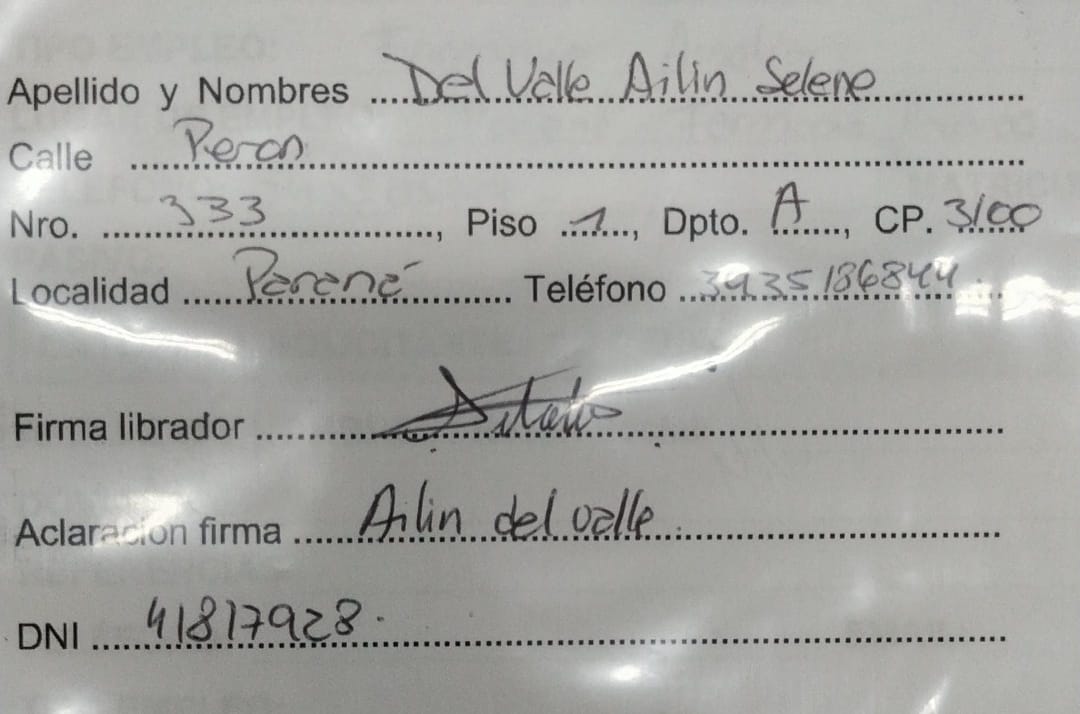 Apellido y Nombres Del Valle Ailin Selene
Calle Peron
Nro. 333, Piso 1, Dpto. A, CP. 3100
Localidad Paraná Teléfono 3435186844
Firma librador
Aclaracion firma Ailin del valle
DNI 41817928.